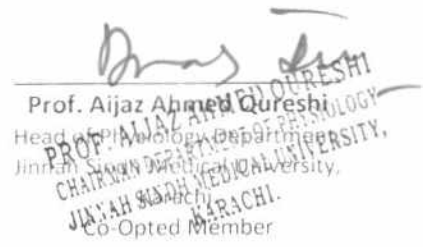 Prof. Aijaz Ahmed Qureshi
Head of Physiology Department
Jinnah Sindh Medical University,
Karachi
Co-Opted Member
PROF. AIJAZ AHMED QURESHI
CHAIRMAN DEPARTMENT OF PHYSIOLOGY
JINNAH SINDH MEDICAL UNIVERSITY,
KARACHI.